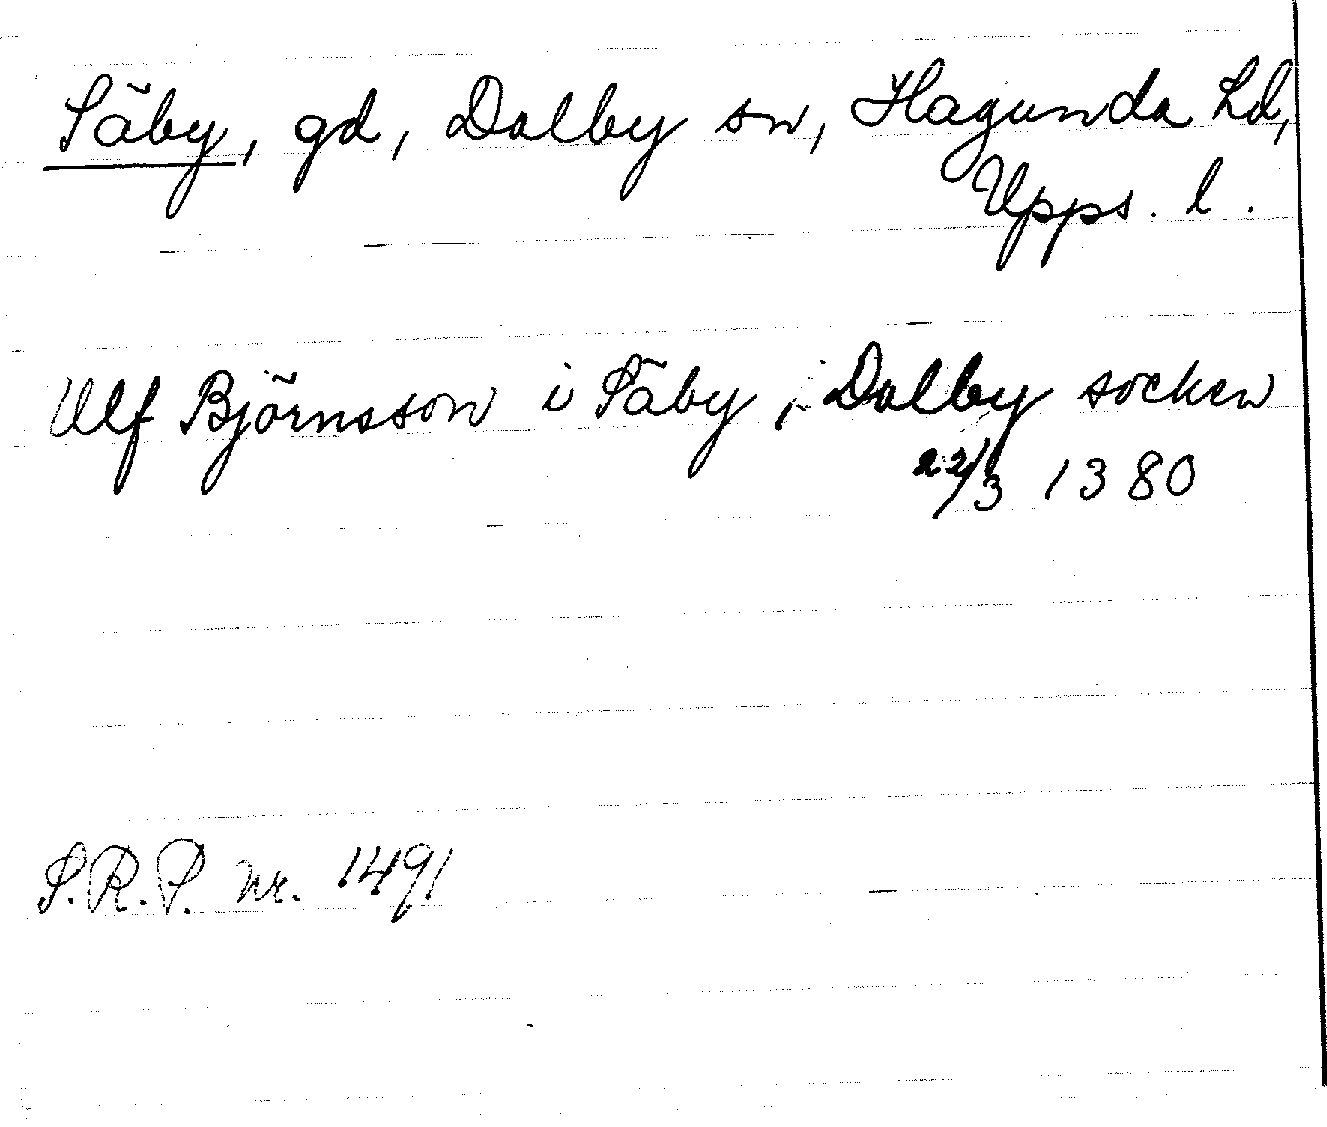 Säby, gd, Dalby sn, Hagunda hd,
Upps. l.
Ulf Björnsson i Säby, Dalby socken
22/3 1380
S.R.P. nr. 1491